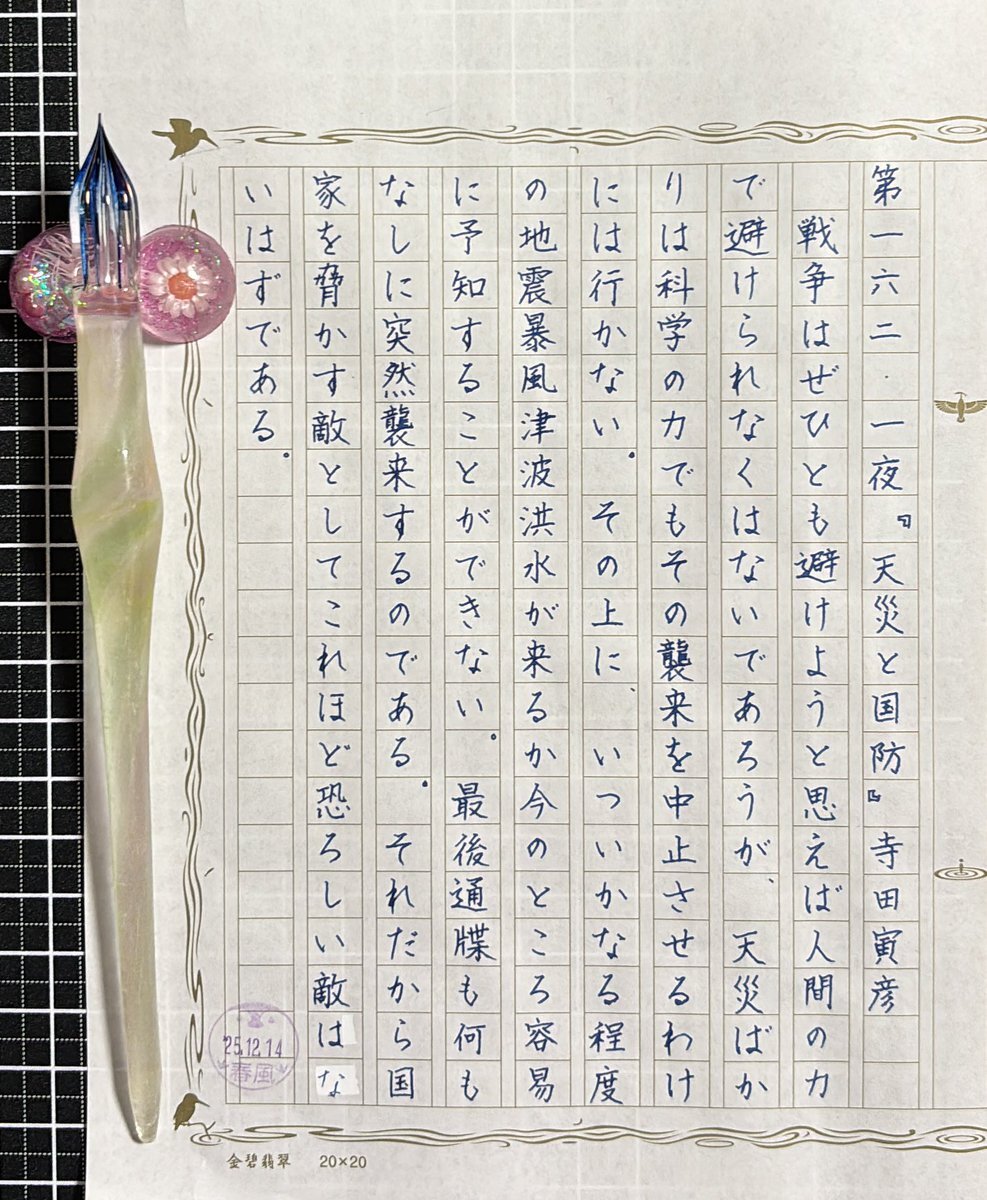 第一六二・一夜『天災と国防』寺田寅彦
戦争はぜひとも避けようと思えば人間の力
で避けられなくはないであろうが、天災ばか
りは科学の力でもその襲来を中止させるわけ
には行かない。その上に、いついかなる程度
の地震暴風津波洪水が来るか今のところ容易
に予知することができない。最後通牒も何も
なしに突然襲来するのである。それだから国
家を脅かす敵としてこれほど恐ろしい敵はな
いはずである。
'25.12.14
春風
金碧翡翠 20×20